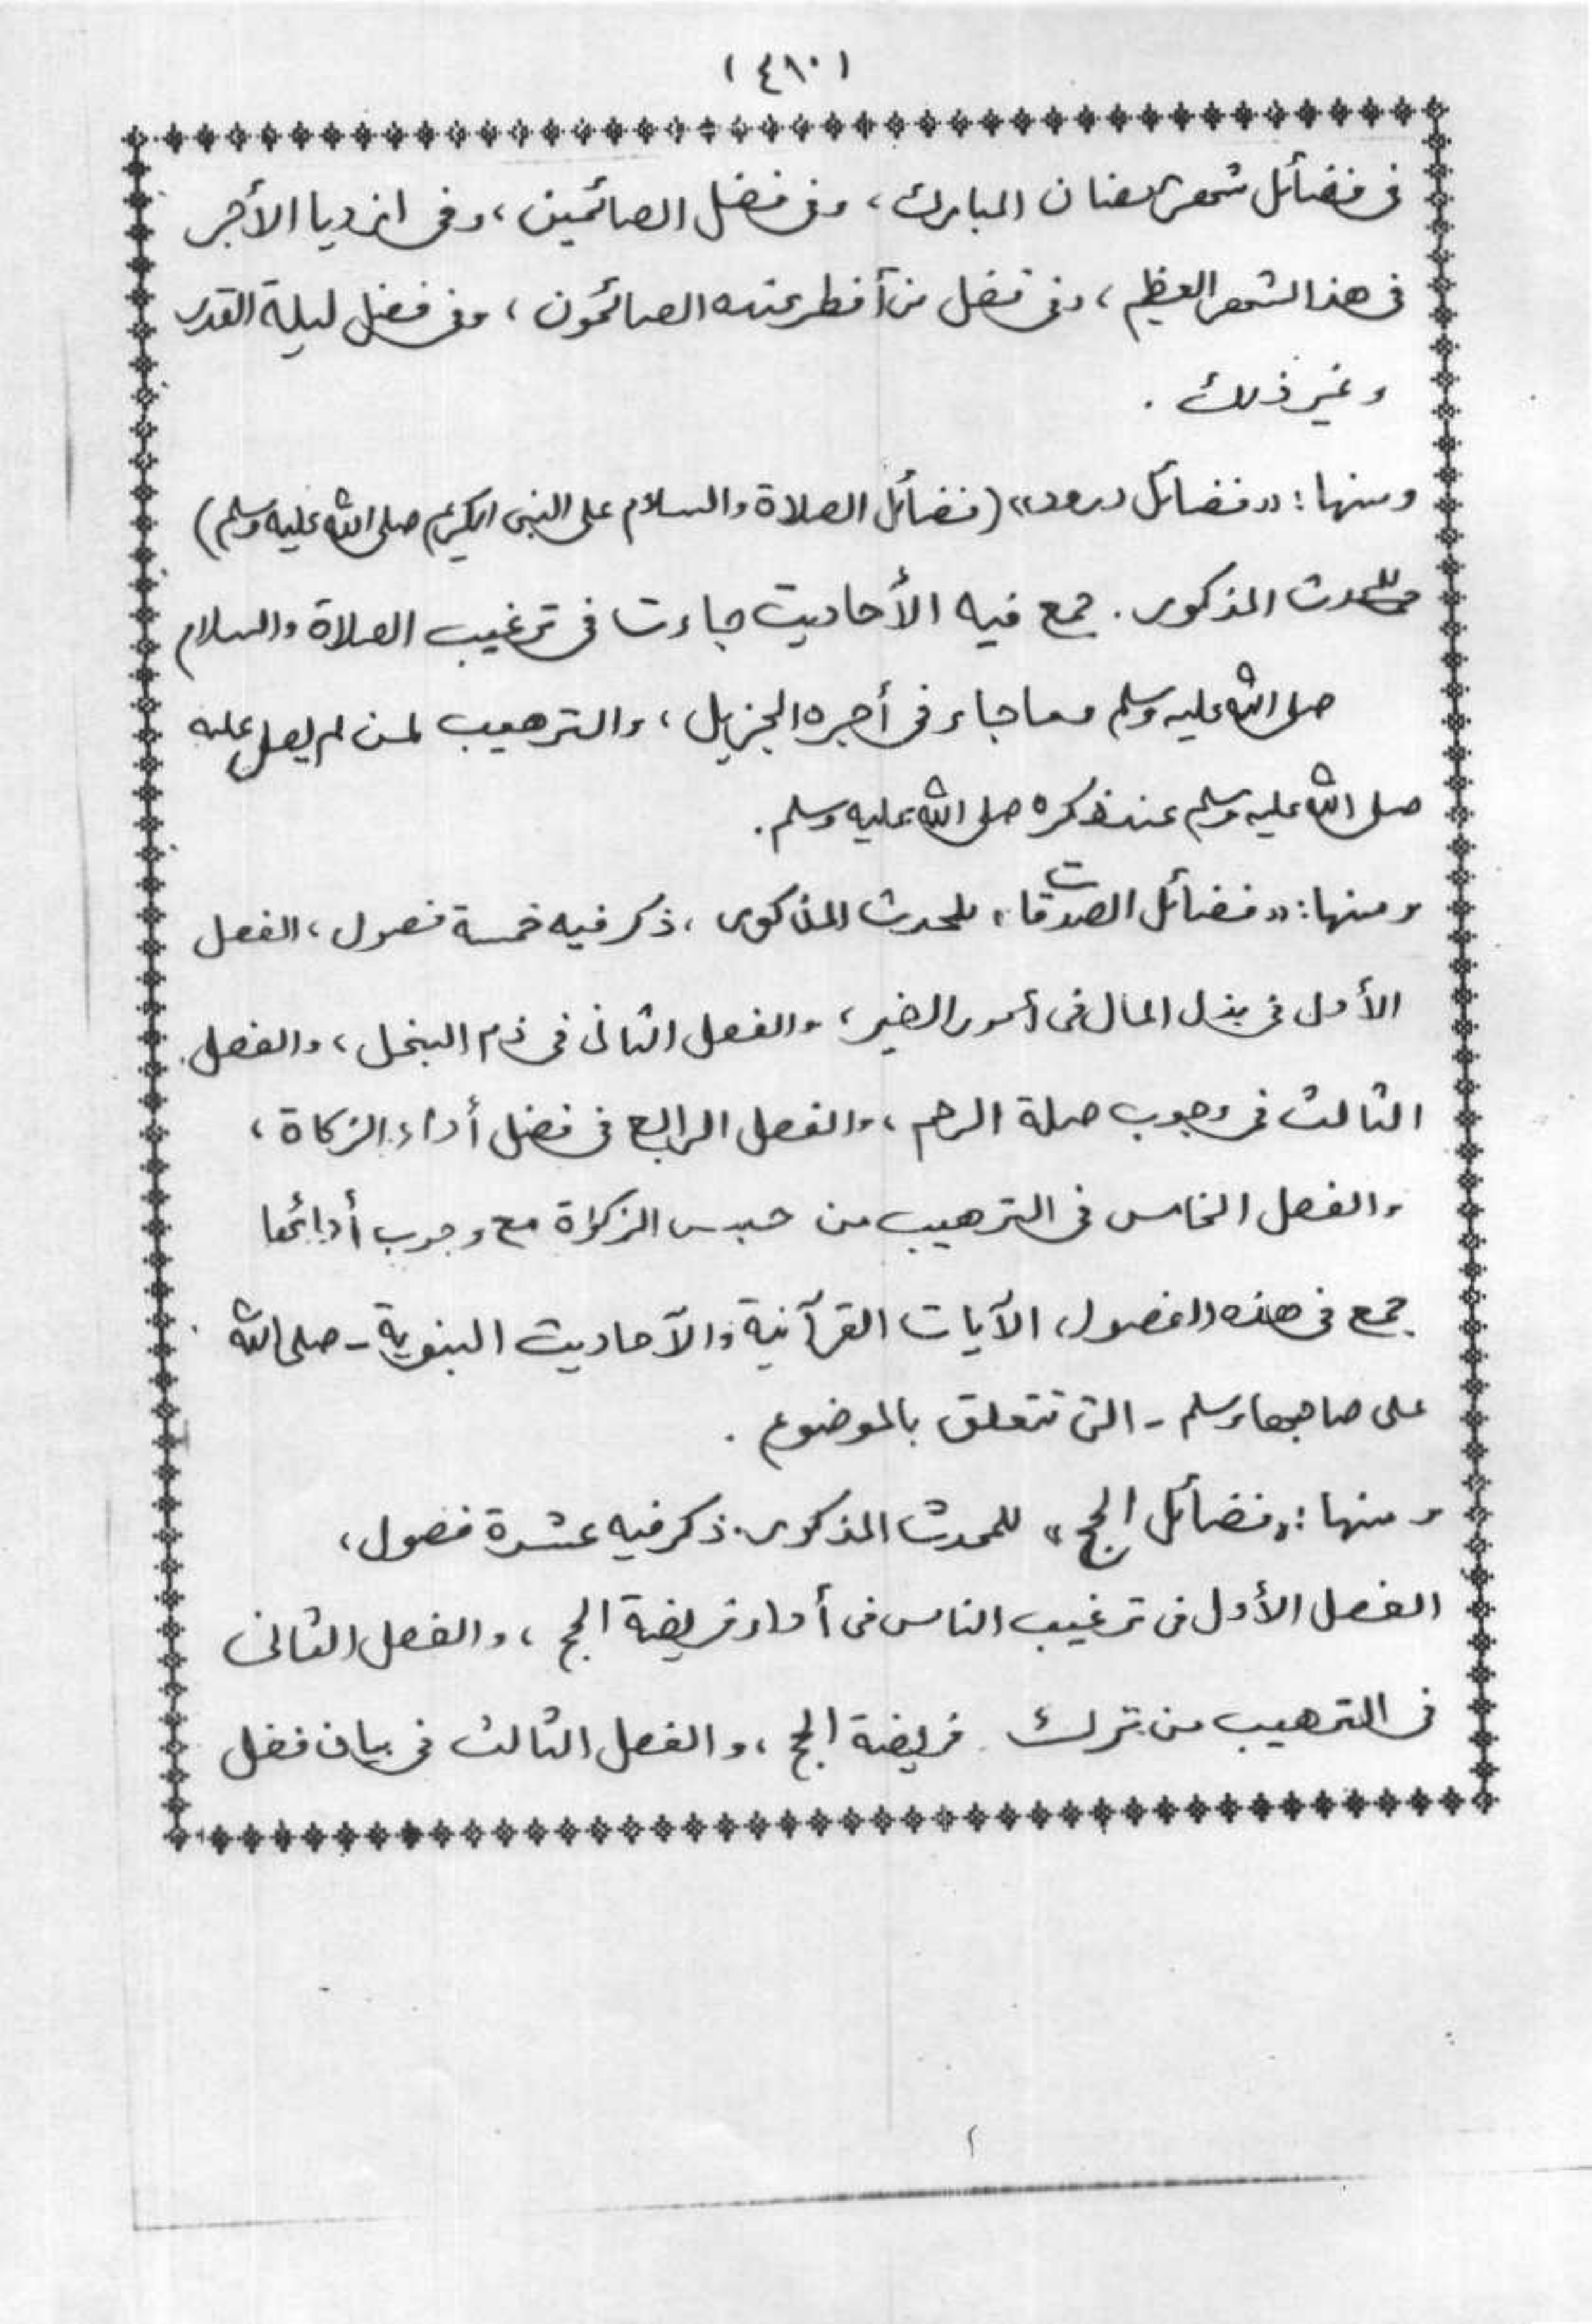 (٤٨٠)
فى فضائل شهر رمضان المبارك، وفى فضل الصائمين، وفى ازديا الأجر
فى هذا الشهر العظيم، وفى فضل من أفطر عنده الصائمون، وفى فضل ليلة القدر
وغير ذلك .
ومنها: «فضائل درود» (فضائل الصلاة والسلام على النبى الكريم صلى الله عليه وسلم)
للمحدث المذكور. جمع فيه الأحاديث جاءت فى ترغيب الصلاة والسلام
صلى الله عليه وسلم وما جاء فى أجره الجزيل، والترهيب لمن لم يصل عليه
صلى الله عليه وسلم عند ذكره صلى الله عليه وسلم.
ومنها: «فضائل الصدقات» للمحدث المذكور، ذكر فيه خمسة فصول، الفصل
الأول فى بذل المال فى أمور الخير، والفصل الثانى فى ذم البخل، والفصل
الثالث فى وجوب صلة الرحم، والفصل الرابع فى فضل أداء الزكاة،
والفصل الخامس فى الترهيب من حبس الزكوٰة مع وجوب أدائها
جمع فى هذه الفصول الآيات القرآنية والآحاديث النبوية - صلى الله
على صاحبها وسلم - التى تتعلق بالموضوع .
ومنها: «فضائل الحج» للمحدث المذكور. ذكر فيه عشرة فصول،
الفصل الأول فى ترغيب الناس فى أداء فريضة الحج، والفصل الثانى
فى الترهيب من ترك فريضة الحج، والفصل الثالث فى بيان فضل